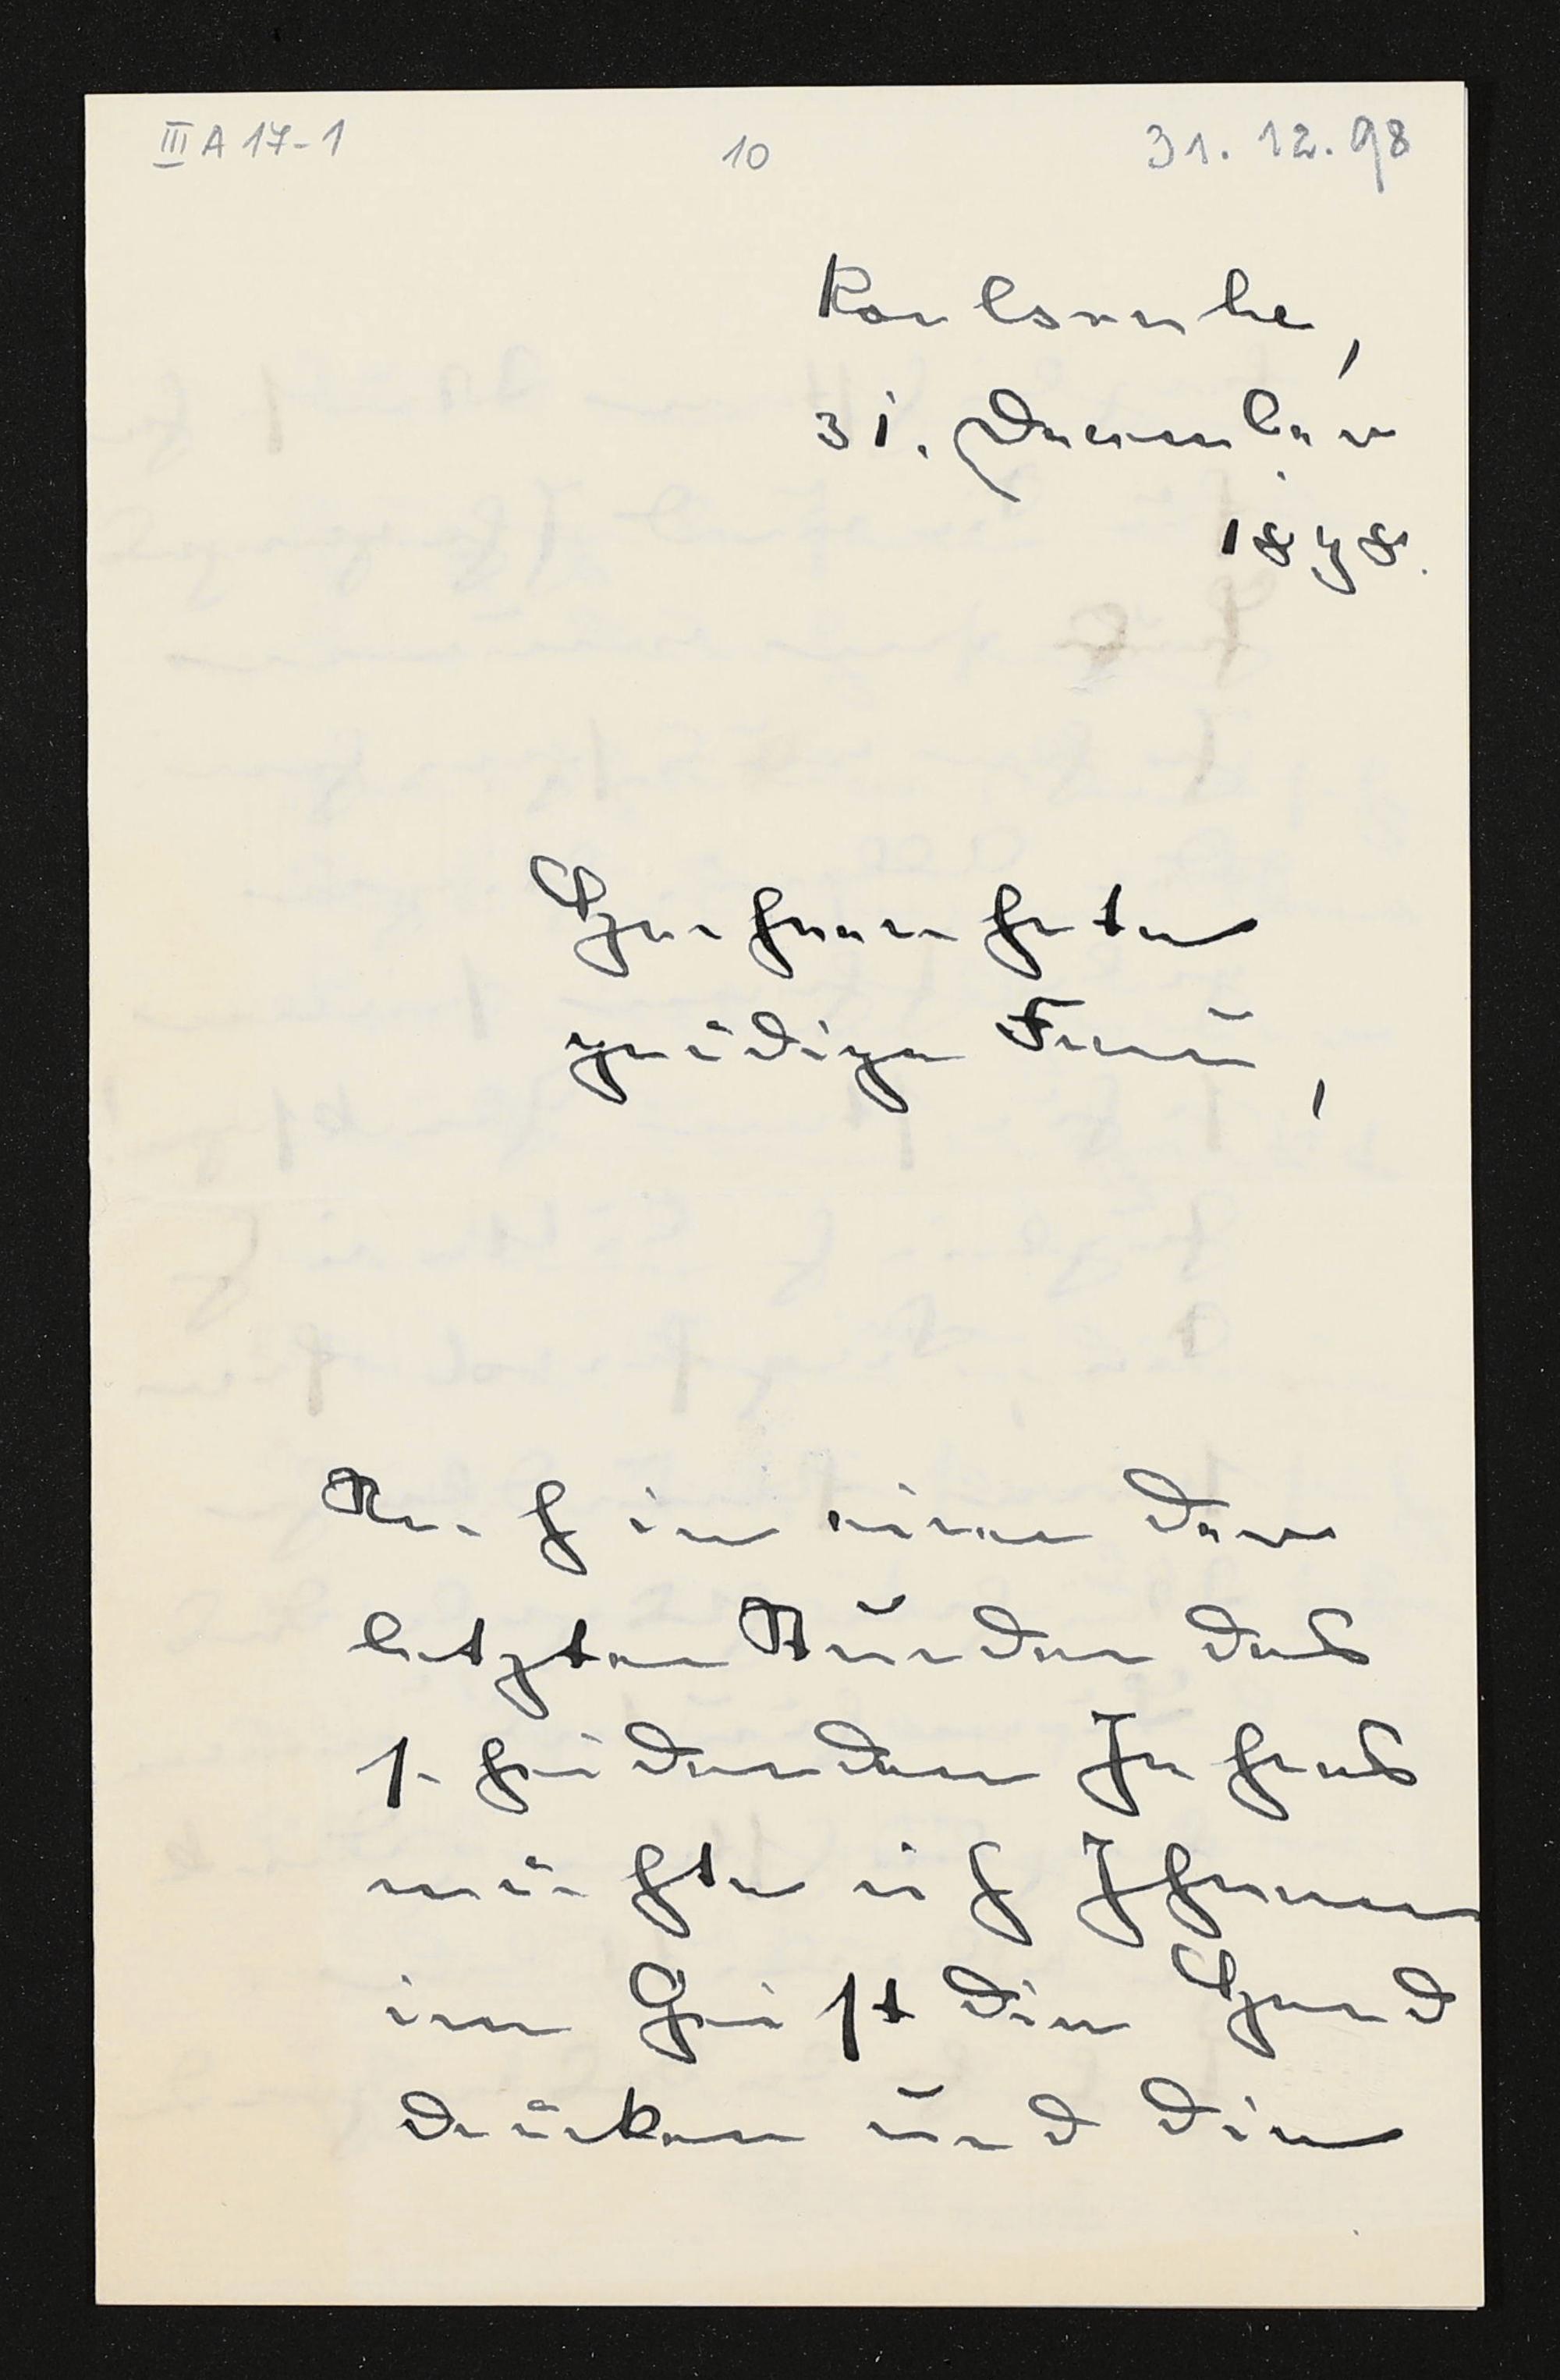 III A 17-1 10 31. 12. 98
Karlsruhe,
31. December
1898.
Hochverehrte
gnädige Frau,
Noch in einer der
letzten Stunden des
scheidenden Jahres
möchte ich Ihnen
im Geist die Hand
drücken und die